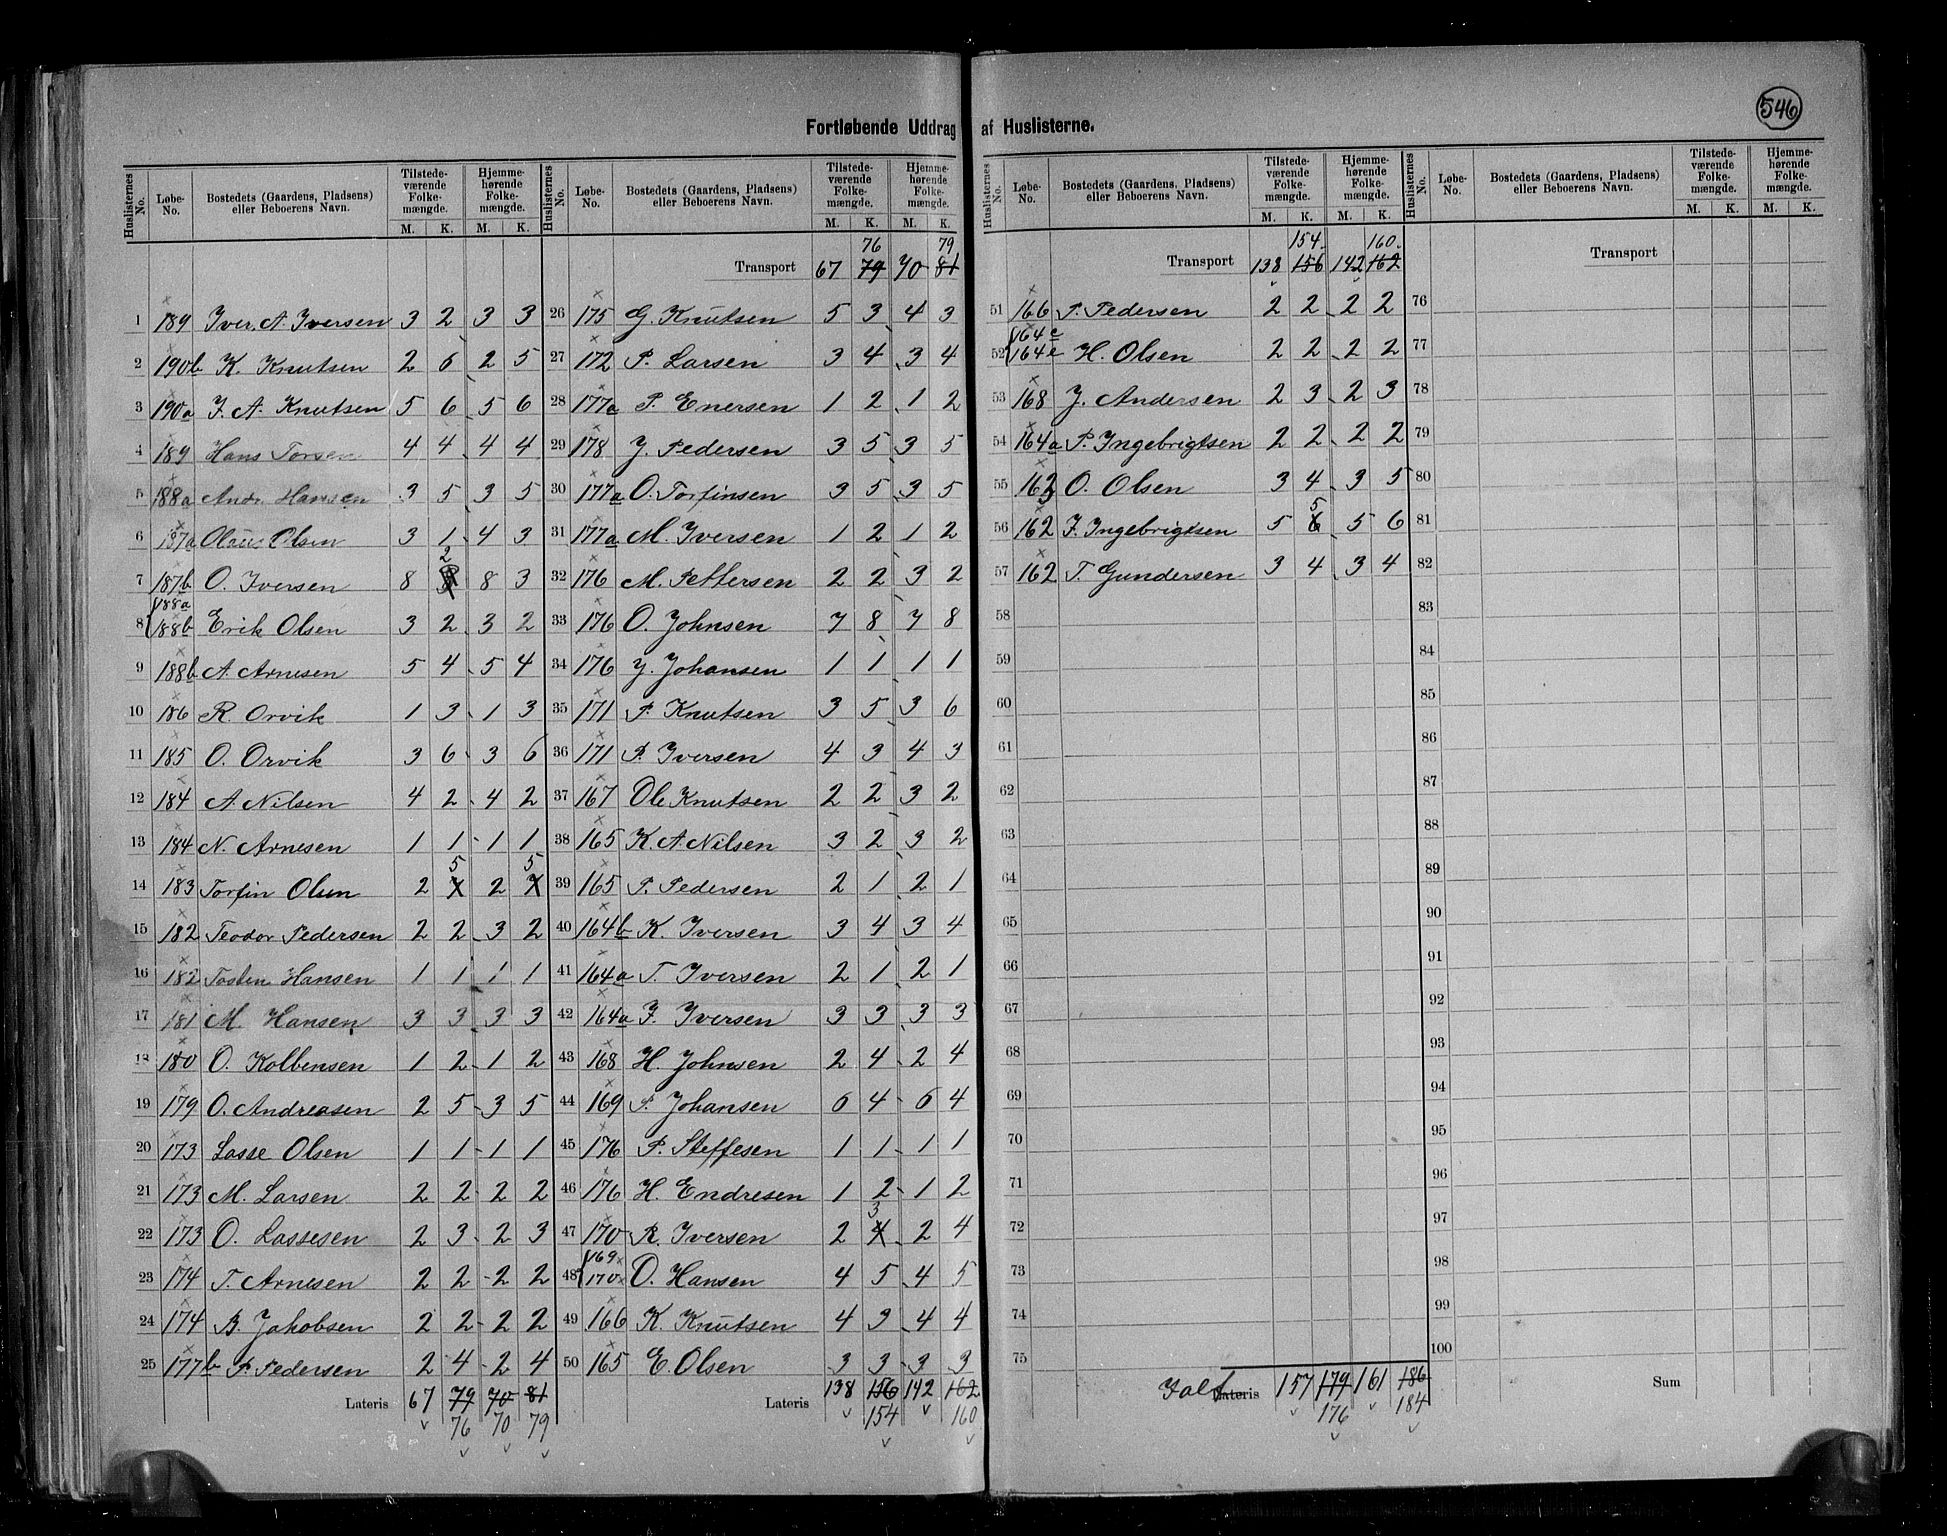 546
Fortløbende Uddrag af Huslisterne.
Huslisternes No. | Løbe-No. | Bostedets (Gaardens, Pladsens) eller Beboerens Navn. | Tilstedeværende Folkemængde. M. K. | Hjemmehørende Folkemængde. M. K.
1 189 Iver A. Iversen 3 2 3 3
2 190b K. Knutsen 2 6 2 5
3 190a J. A. Knutsen 5 6 5 6
4 189 Hans Torsen 4 4 4 4
5 188a Andr. Hansen 3 5 3 5
6 187a Olaus Olsen 3 1 4 3
7 187b O. Iversen 8 2 8 3
8 188a 188b Erik Olsen 3 2 3 2
9 188b A. Arnesen 5 4 5 4
10 186 R. Orvik 1 3 1 3
11 185 O. Orvik 3 6 3 6
12 184 A. Nilsen 4 2 4 2
13 184 N. Arnesen 1 1 1 1
14 183 Torfin Olsen 2 5 2 5
15 182 Teodor Pedersen 2 2 3 2
16 182 Tosten Hansen 1 1 1 1
17 181 M. Hansen 3 3 3 3
18 180 O. Kolbensen 1 2 1 2
19 179 O. Andreasen 2 5 3 5
20 173 Lasse Olsen 1 1 1 1
21 173 M. Larsen 2 2 2 2
22 173 O. Lassesen 2 3 2 3
23 174 T. Arnesen 2 2 2 2
24 174 B. Jakobsen 2 2 2 2
25 177b P. Pedersen 2 4 2 4
Lateris 67 79 70 81
76 70 79
Huslisternes No. | Løbe-No. | Bostedets (Gaardens, Pladsens) eller Beboerens Navn. | Tilstedeværende Folkemængde. M. K. | Hjemmehørende Folkemængde. M. K.
76 79
Transport 67 79 70 81
26 175 G. Knutsen 5 3 4 3
27 172 P. Larsen 3 4 3 4
28 177a P. Enersen 1 2 1 2
29 178 J. Pedersen 3 5 3 5
30 177a O. Torfinsen 3 5 3 5
31 177a M. Iversen 1 2 1 2
32 176 M. Pettersen 2 2 3 2
33 176 O. Johnsen 7 8 7 8
34 176 J. Johansen 1 1 1 1
35 171 P. Knutsen 3 5 3 6
36 171 P. Iversen 4 3 4 3
37 167 Ole Knutsen 2 2 3 2
38 165 K. A. Nilsen 3 2 3 2
39 165 P. Pedersen 2 1 2 1
40 164b K. Iversen 3 4 3 4
41 164a T. Iversen 2 1 2 1
42 164a J. Iversen 3 3 3 3
43 168 H. Johnsen 2 4 2 4
44 169 P. Johansen 6 4 6 4
45 176 P. Steffesen 1 1 1 1
46 176 H. Endresen 1 2 1 2
47 170 R. Iversen 2 3 2 4
48 169 170 O. Hansen 4 5 4 5
49 166 K. Knutsen 4 3 4 4
50 165 E. Olsen 3 3 3 3
Lateris 138 156 142 162
154 160
Huslisternes No. | Løbe-No. | Bostedets (Gaardens, Pladsens) eller Beboerens Navn. | Tilstedeværende Folkemængde. M. K. | Hjemmehørende Folkemængde. M. K.
154 160
Transport 138 156 142 162
51 166 P. Pedersen 2 2 2 2
52 164c 164e H. Olsen 2 2 2 2
53 168 J. Andersen 2 3 2 3
54 164a P. Ingebrigtsen 2 2 2 2
55 162 O. Olsen 3 4 3 5
56 162 J. Ingebrigtsen 5 5 5 6
57 162 T. Gundersen 3 4 3 4
58
59
60
61
62
63
64
65
66
67
68
69
70
71
72
73
74
75
Ialt Lateris 157 179 161 186
176 184
Huslisternes No. | Løbe-No. | Bostedets (Gaardens, Pladsens) eller Beboerens Navn. | Tilstedeværende Folkemængde. M. K. | Hjemmehørende Folkemængde. M. K.
Transport
76
77
78
79
80
81
82
83
84
85
86
87
88
89
90
91
92
93
94
95
96
97
98
99
100
Sum